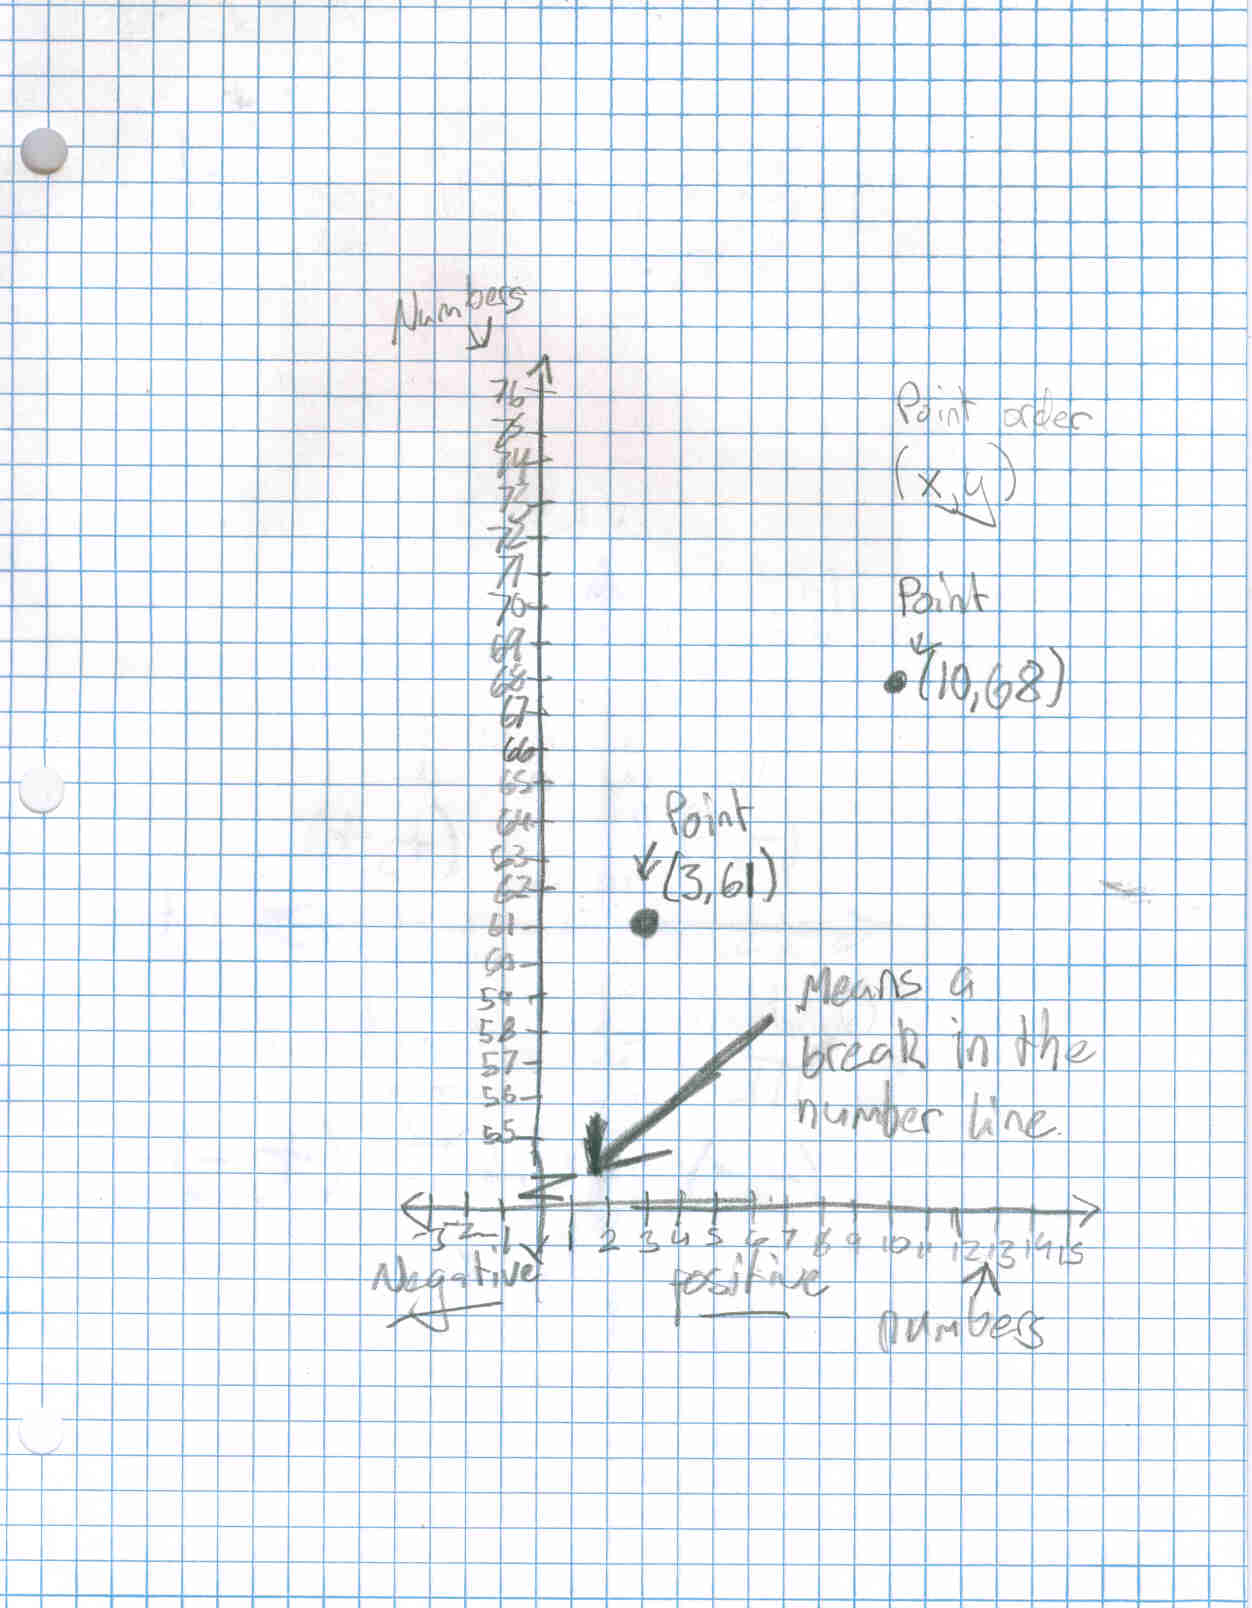 Numbers
76
75
74
73
72
71
70
69
68
67
66
65
64
63
62
61
60
59
58
57
56
55
Point order
(x,y)
Point
(10,68)
Point
(3,61)
Means a
break in the
number line.
-3 -2 -1 1 2 3 4 5 6 7 8 9 10 11 12 13 14 15
Negative positive
numbers